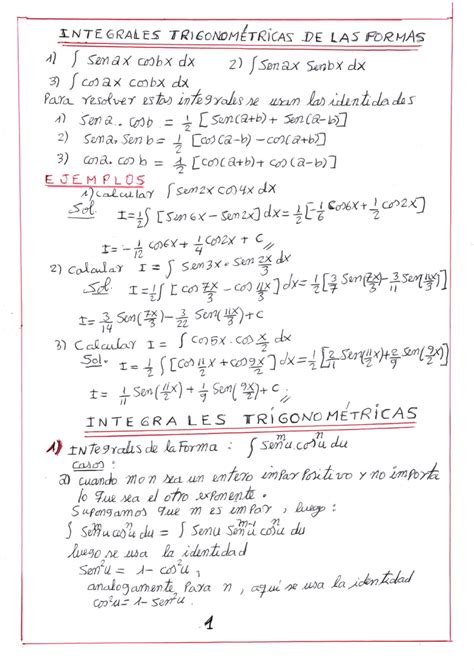 INTEGRALES TRIGONOMÉTRICAS DE LAS FORMAS
1) ∫ Sen ax cos bx dx    2) ∫ Sen ax Sen bx dx
3) ∫ cos ax cos bx dx
Para resolver estas integrales se usan las identidades
1) Sen a . cos b = 1/2 [Sen(a+b) + Sen(a-b)]
2) Sen a. Sen b = 1/2 [cos(a-b) - cos(a+b)]
3) cos a. cos b = 1/2 [cos(a+b) + cos(a-b)]
EJEMPLOS
1) calcular ∫ sen2x cos4x dx
Sol. I = 1/2 ∫ [Sen6x - Sen2x] dx = 1/2 [-1/6 cos6x + 1/2 cos2x]
I = -1/12 cos6x + 1/4 cos2x + C //
2) calcular I = ∫ Sen3x . Sen 2x/3 dx
Sol. I = 1/2 ∫ [cos 7x/3 - cos 11x/3] dx = 1/2 [3/7 Sen(7x/3) - 3/11 Sen(11x/3)]
I = 3/14 Sen(7x/3) - 3/22 Sen(11x/3) + C
3) Calcular I = ∫ cos5x . cos x/2 dx
Sol. I = 1/2 ∫ [cos 11x/2 + cos 9x/2] dx = 1/2 [2/11 Sen(11x/2) + 2/9 Sen(9x/2)]
I = 1/11 Sen(11x/2) + 1/9 Sen(9x/2) + C //
INTEGRALES TRIGONOMÉTRICAS
1) INTegrales de la Forma : ∫ Sen^m u cos^n u du
casos :
a) cuando m o n sea un entero impar Positivo y no importa
lo que sea el otro exponente.
Supongamos que m es impar, luego :
∫ Sen^m u cos^n u du = ∫ Sen u Sen^(m-1) u cos^n u du
luego se usa la identidad
Sen²u = 1 - cos²u,
analogamente Para n, aqui se usa la identidad
cos²u = 1 - Sen²u.
1